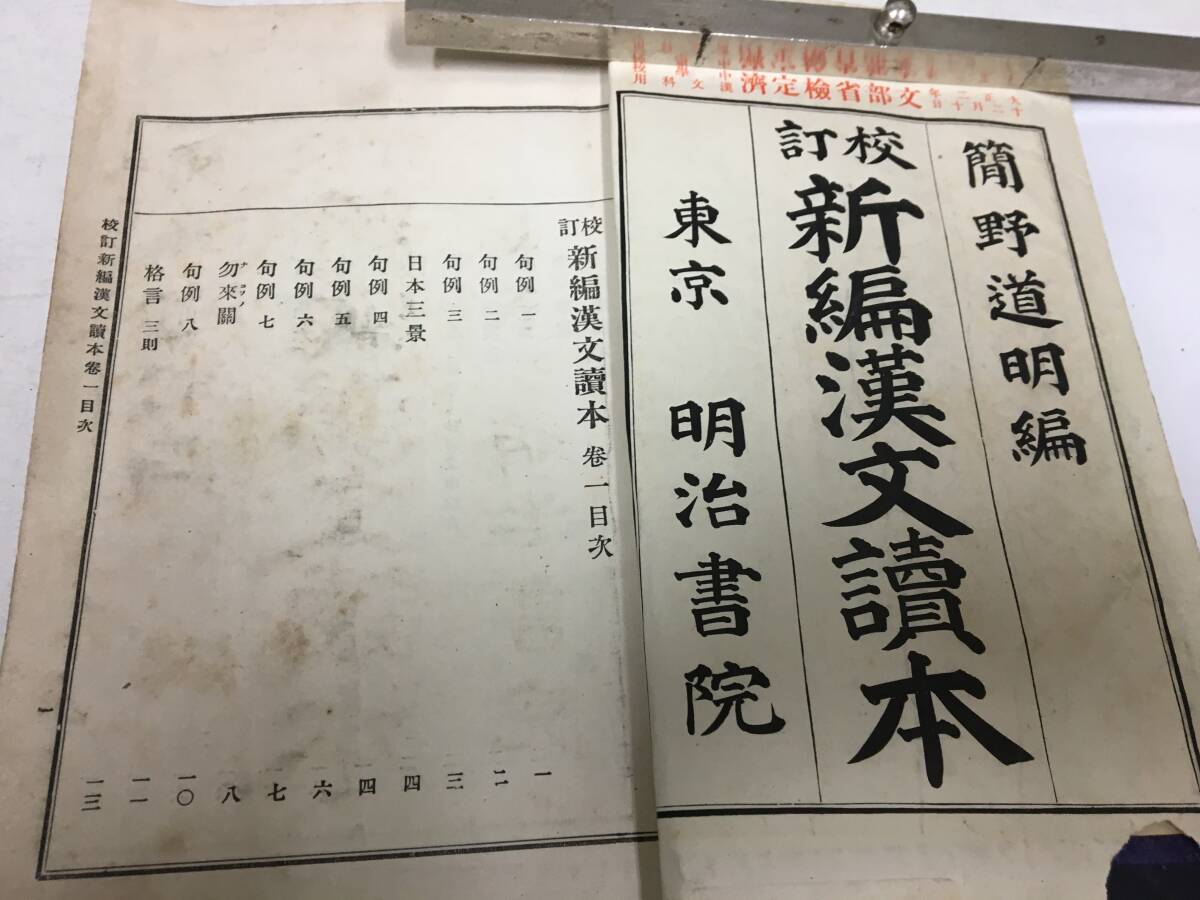 文部省檢定濟
簡野道明編
校訂
新編漢文讀本
東京 明治書院
校訂 新編漢文讀本 卷一目次
句例 一 一
句例 二 二
句例 三 三
日本三景 四
句例 四 四
句例 五 六
句例 六 七
句例 七 八
勿來關 一〇
句例 八 一一
格言 三則 一三
校訂新編漢文讀本卷一目次
一